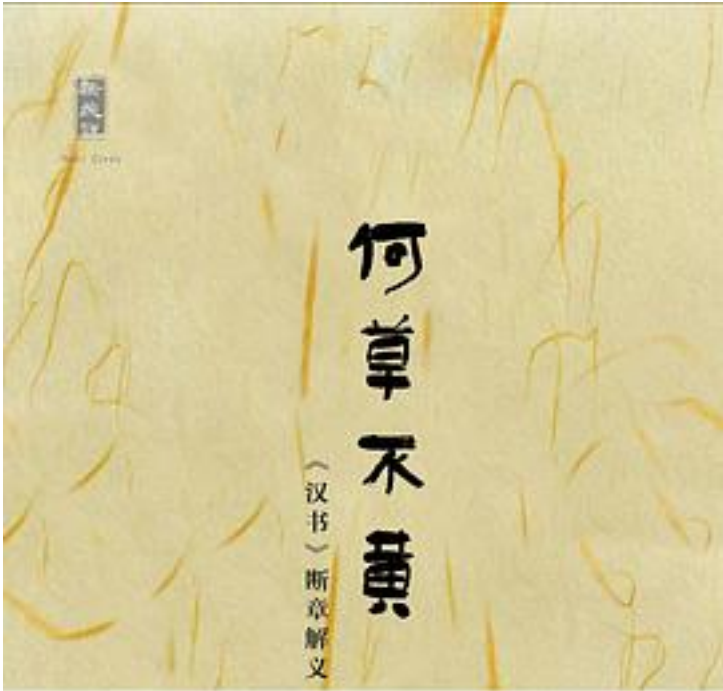 何草不黄
《汉书》断章解义